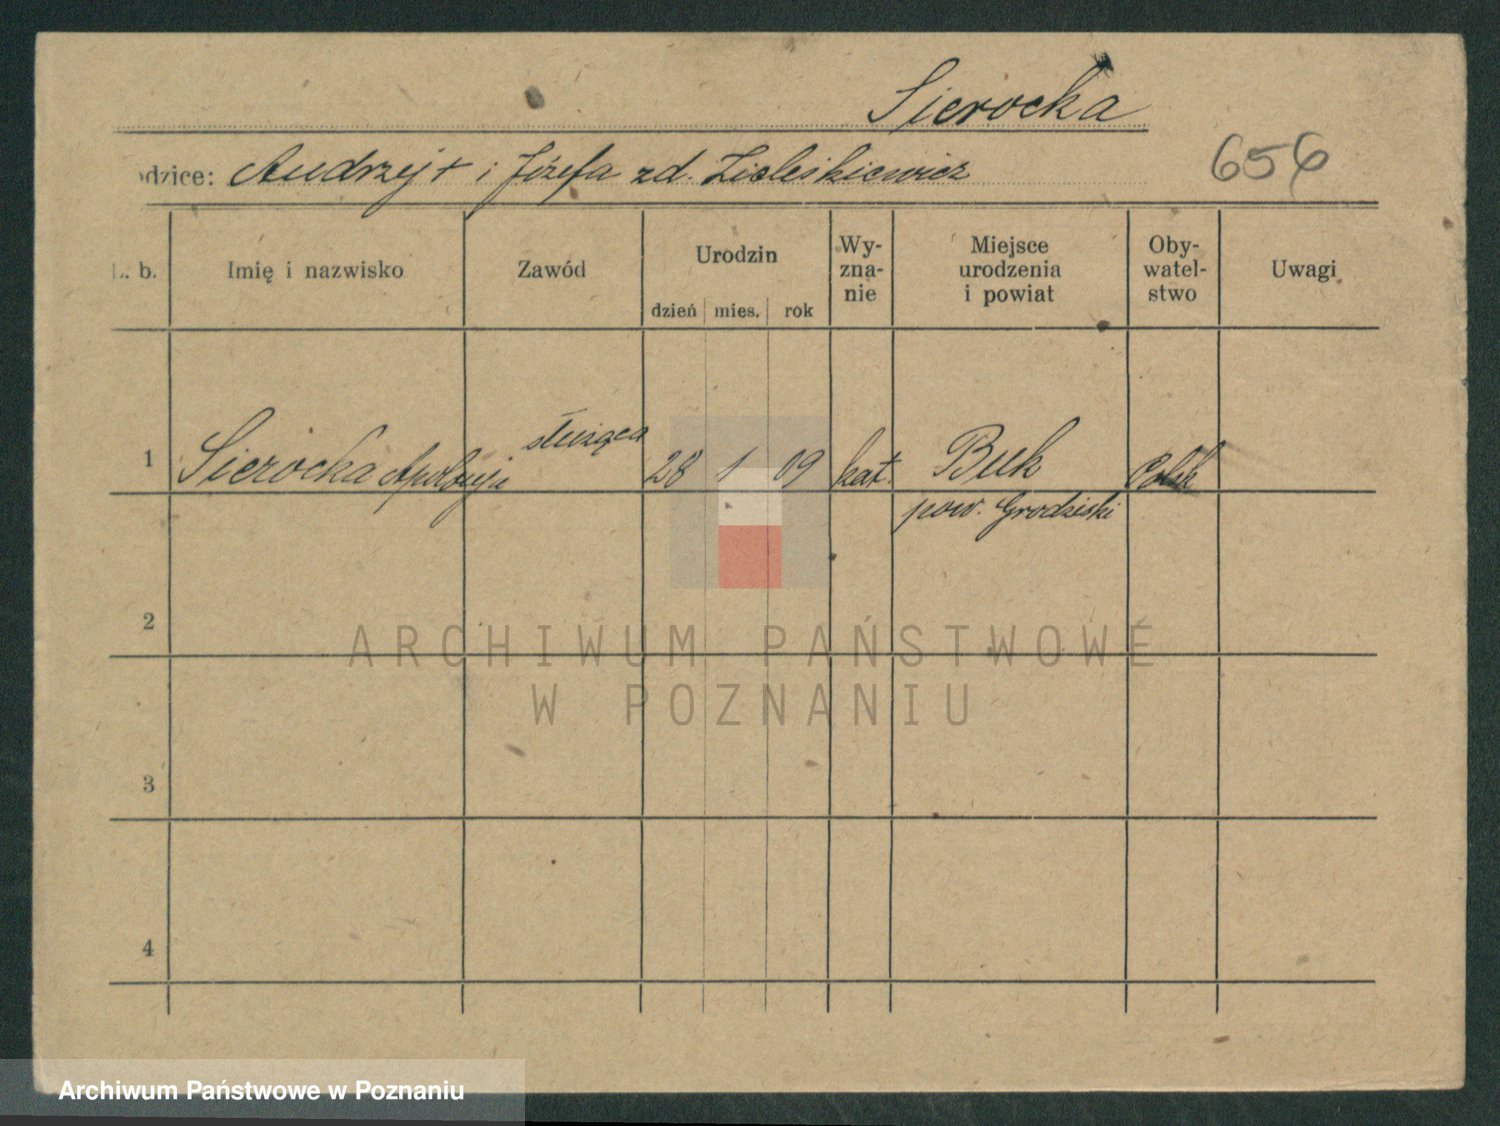 Sierocka
odzice: Andrzej + i Józefa zd. 656
L. b. Imię i nazwisko Zawód Urodzin dzień mies. rok Wy-zna-nie Miejsce urodzenia i powiat Oby-watel-stwo Uwagi
1 Sierocka Apolonja służąca 28 1 09 kat. Buk
pow. Grodziski
2
ARCHIWUM PAŃSTWOWE
W POZNANIU
3
4
Archiwum Państwowe w Poznaniu